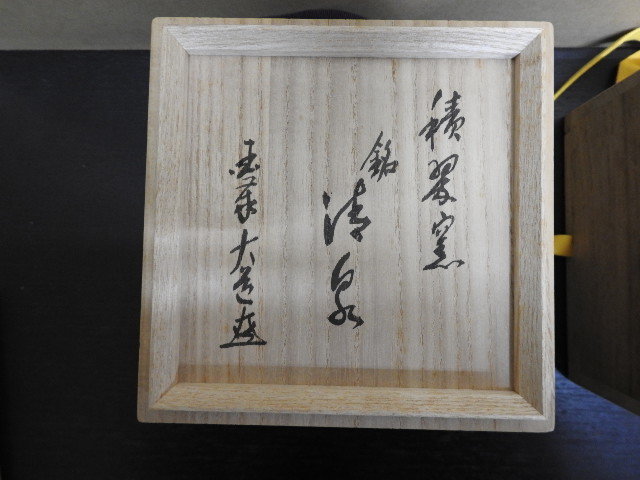 積翠窯
銘
清泉
大道